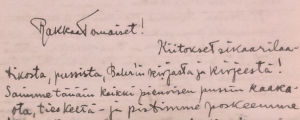 Rakkaat omaiset!
Kiitokset sikaarilaa-
tikosta, pussista, Baker'in kirjasta ja kirjeestä!
Saimme tänään kaikki pienoisen pussin kaaka-
ota, - ja pistimme poskeemme